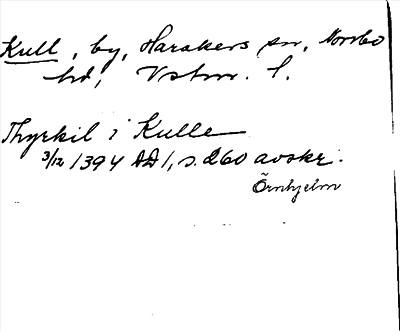 Kull, by, Harakers sn, Norrbo
hd, Vstm. l.
Thyrkil i Kulle
3/12 1394 DD 1, s. 260 avskr.
Örnhjelm